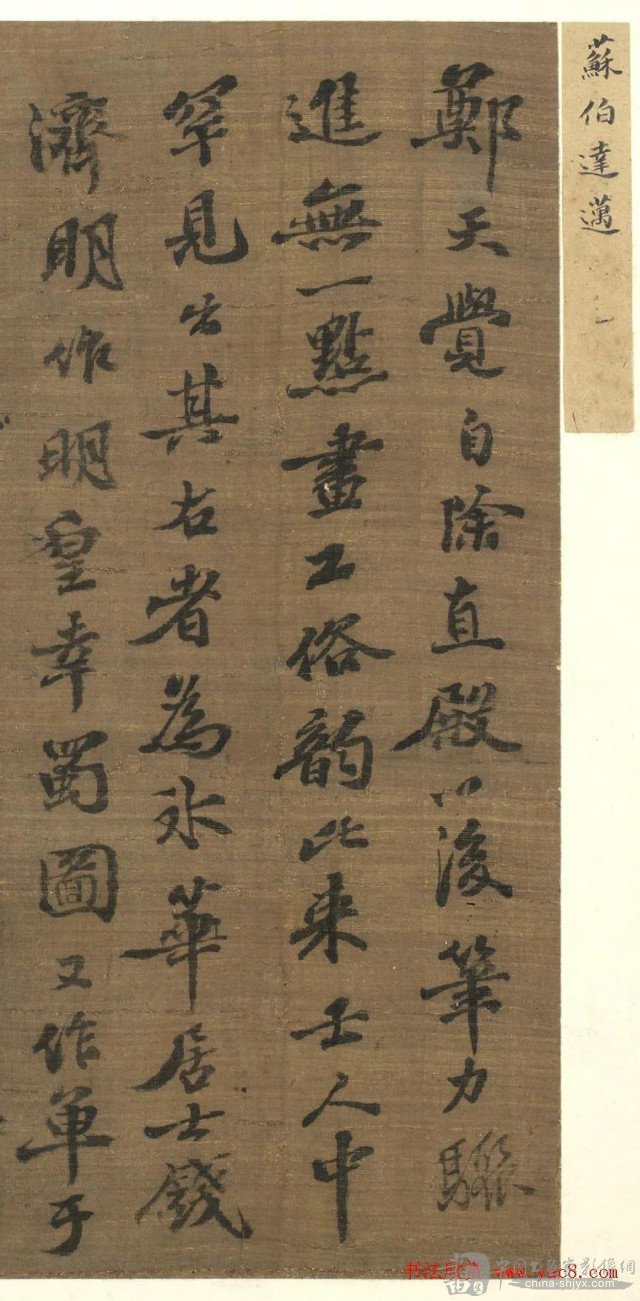 蘇伯達邁 一
鄭天覺自除直殿以後筆力驟
進無一點畫工俗韻比來士人中
罕見出其右者為氷華居士錢
濟明作明皇幸蜀圖又作單于
书法 c8.com
影像網
china-shjyx.com